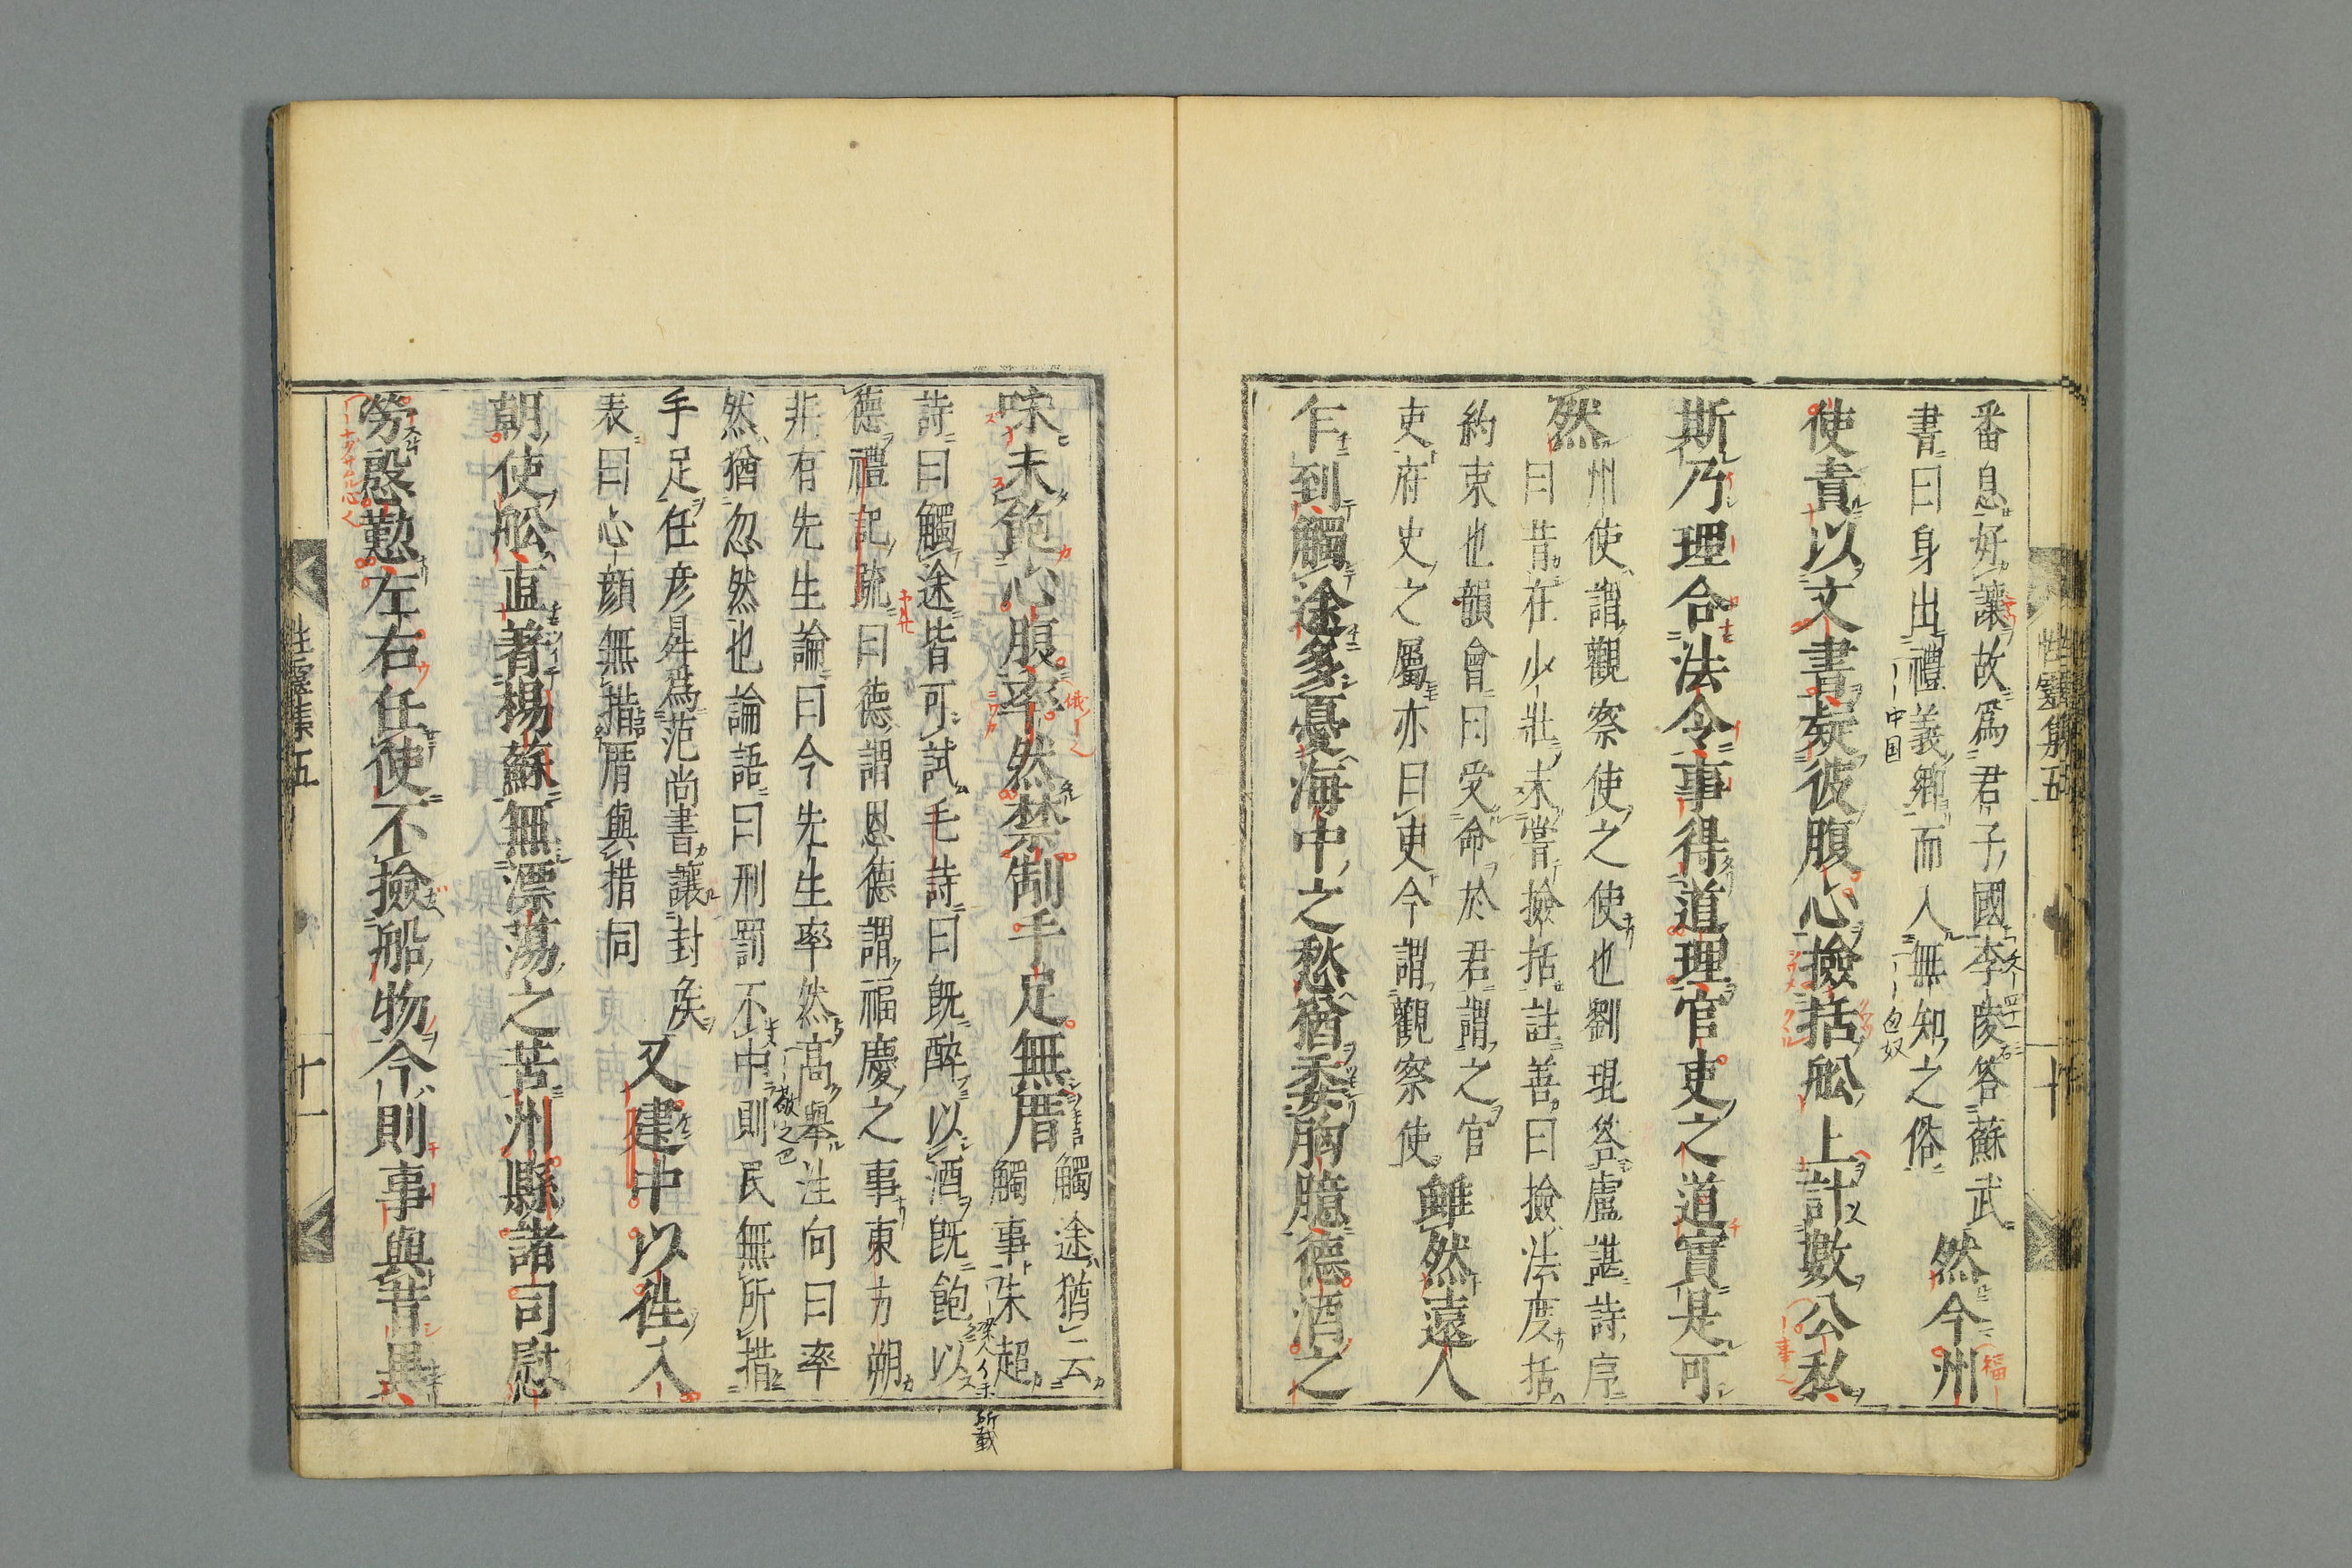 番息好讓故爲君子國李陵答蘇武
書曰身出禮義鄉而人無知之俗
然今州
使責以文書疑彼腹心撿括舩上計數公私
斯乃理合法令事得道理官吏之道實是可
然
州使謂觀察使之使也劉琨答盧諶詩序
曰昔在少壯未嘗撿括註善曰撿法度括
約束也韻會曰受命於君謂之官
吏府史之屬亦曰吏今謂觀察使
雖然遠人
乍到觸途多憂海中之愁猶委胸臆德酒之
味未飽心腹率然禁制手足無厝
觸途猶云
觸事朱超
詩曰觸途皆可試毛詩曰旣醉以酒旣飽以
德禮記疏曰德謂恩德謂福慶之事東方朔
非有先生論曰今先生率然高舉注向曰率
然猶忽然也論語曰刑罰不中則民無所措
手足任彦昇爲范尚書讓封矦
表曰心顔無措厝與措同
又建中以徃入
朝使舩直著楊蘇無漂蕩之苦州縣諸司慰
勞慇懃左右任使不撿船物今則事與昔異
性靈集五
十
性靈集五
十一
中国
匈奴
所載